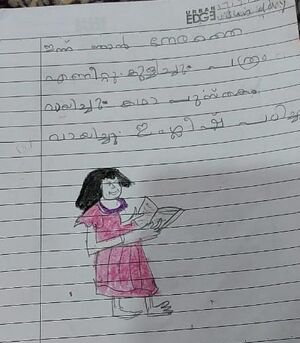 URBAN EDGE
ഇന്ന് ഞാൻ നേരത്തെ
എണീറ്റു കുളിച്ചും പത്രം
വായിച്ചും കഥാ പുസ്തകം
വായിച്ചു ഇംഗ്ലീഷ് പഠിച്ചു